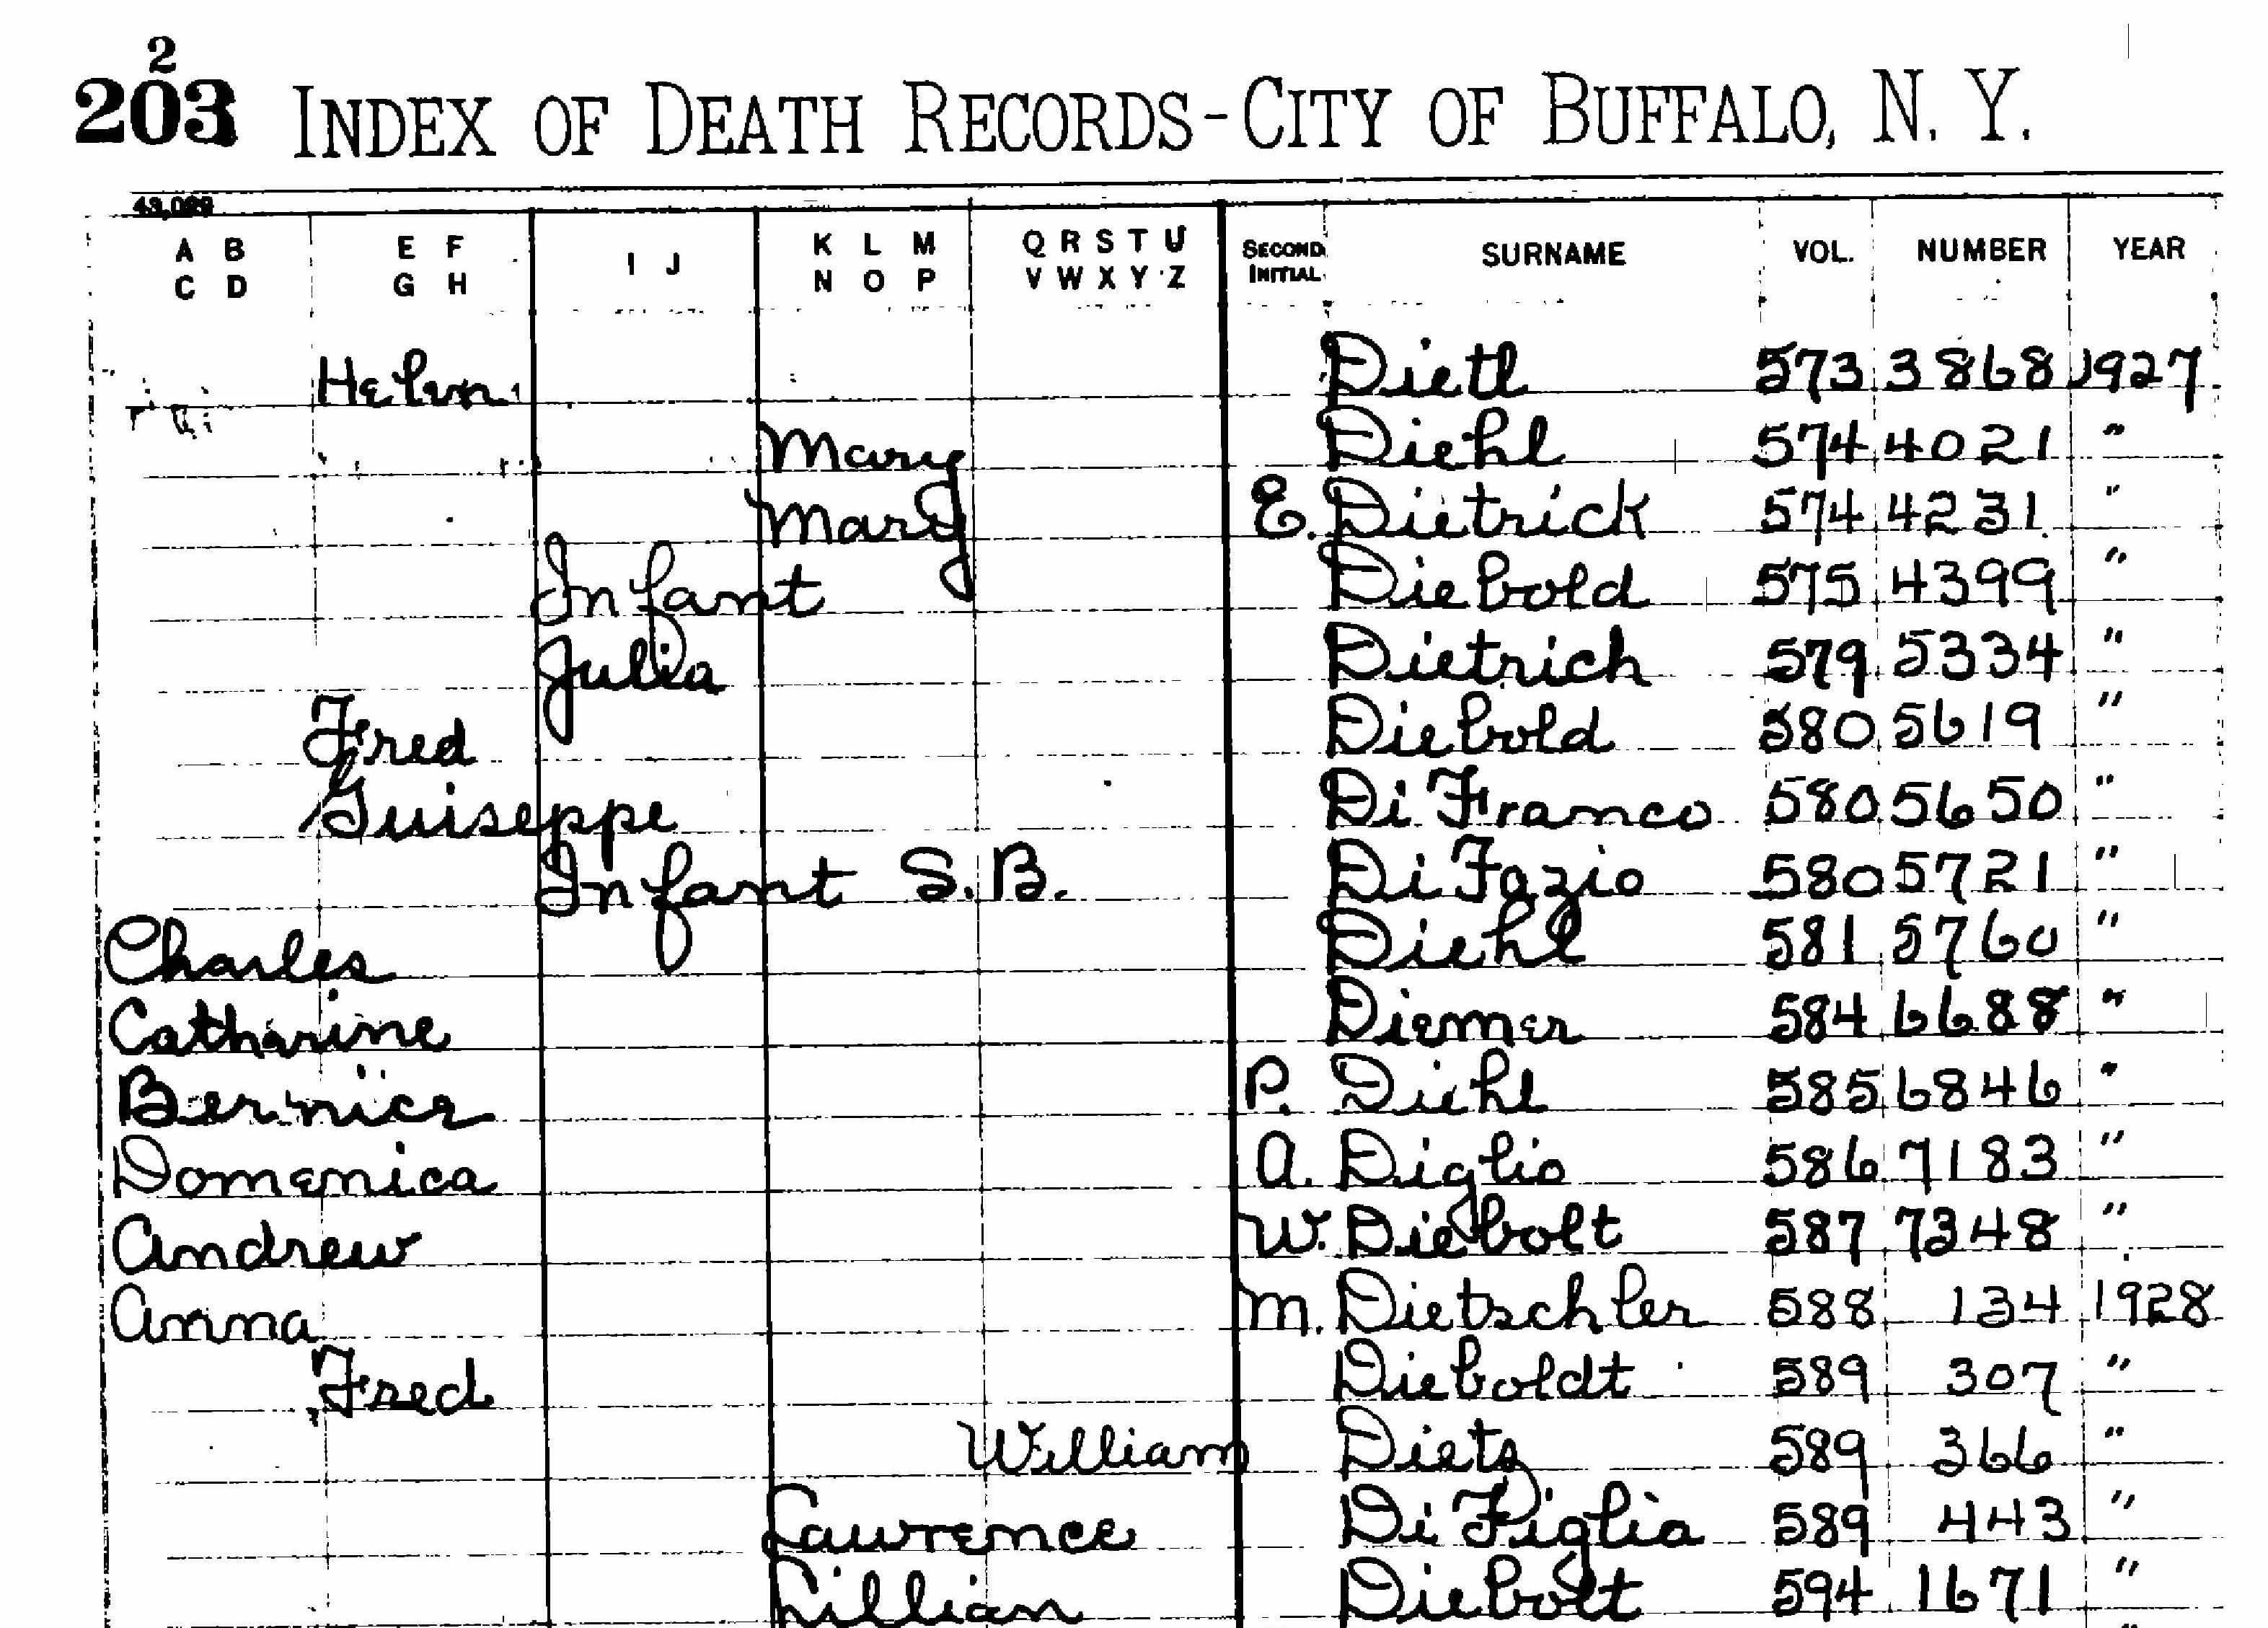 2
203 INDEX OF DEATH RECORDS-CITY OF BUFFALO, N. Y.
43,099
A B E F I J K L M Q R S T U SECOND SURNAME VOL. NUMBER YEAR
C D G H N O P V W X Y Z INITIAL
Helen Dietl 573 3868 1927
Mary Diehl 574 4021 "
Mary E. Dietrick 574 4231 "
Infant Diebold 575 4399 "
Julia Dietrich 579 5334 "
Fred Diebold 580 5619 "
Guiseppe Di Franco 580 5650 "
Infant S.B. Di Fazio 580 5721 "
Charles Diehl 581 5760 "
Catharine Diemer 584 6688 "
Bernice P. Diehl 585 6846 "
Domenica A. Diglio 586 7183 "
Andrew W. Diebolt 587 7348 "
Anna M. Dietschler 588 134 1928
Fred Dieboldt 589 307 "
William Dietz 589 366 "
Lawrence Di Figlia 589 443 "
Lillian Diebolt 594 1671 "